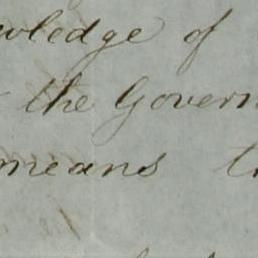 wledge of
the Govern
means t